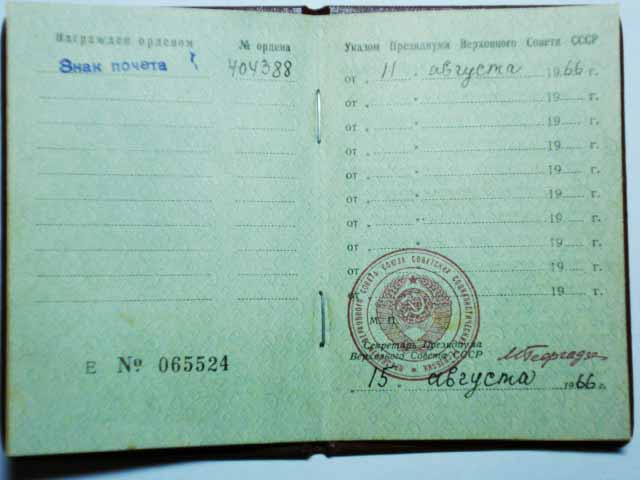 Награжден орденом
№ ордена
Знак почета
404388
Е № 065524
Указом Президиума Верховного Совета СССР
от „ 11 “ августа 1966 г.
от „ “ 19 г.
от „ “ 19 г.
от „ “ 19 г.
от „ “ 19 г.
от „ “ 19 г.
от „ “ 19 г.
от „ “ 19 г.
от „ “ 19 г.
19 г.
М. П.
Секретарь Президиума
Верховного Совета СССР
М Георгадзе
15 августа 1966 г.
ВЕРХОВНОГО СОВЕТА СОЮЗА СОВЕТСКИХ СОЦИАЛИСТИЧЕСКИХ